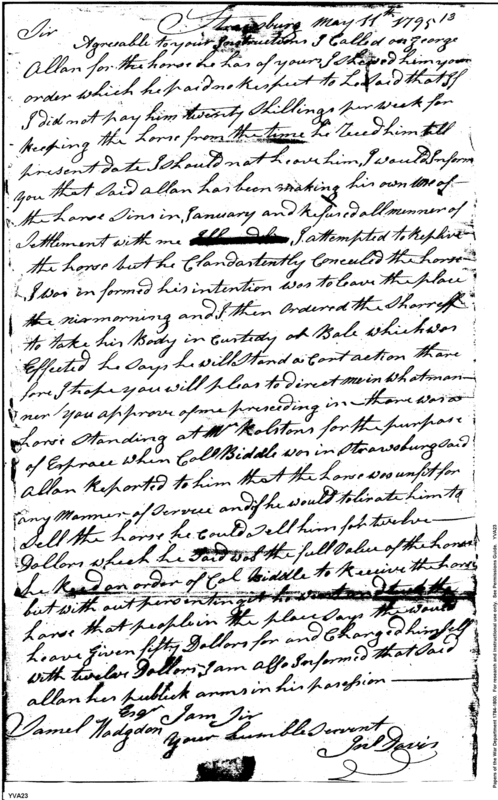 Strasburg May 11th 1795 13
Sir
Agreable to your Instructions I Called on George
Allan for the horse he has of yours I shewed him your
order which he paid no Respect to he Said that If
I did not pay him twenty Shillings per week for
keeping the horse from the time he Reced him till
present date I Should not heave him, I would Inform
You that Said allan has been making his own use of
the horse Sins in January and Refused all menner of
Settlement with me I attempted to Replive
the horse but he Clandastently Conceuled the horse
I was in formed his intention was to leave the place
the nixt morning and I then ordered the Sharreff
to take his Body in Custedy ot Bale which was
Effected he says he will Stand a Cort action thare
fore I hope you will pleas to direct me in what man
ner You approve of me preseding in thare was a
horse Standing at Mr Ralstons for the purpose
of Exprace when Colo Biddle was in Strawsburg Said
Allan Reported to him that the horse was unfit for
any Manner of Service and if he would tolirate him to
Sell the horse he could Sell him for twelve
Dollars which he Said was the full Value of the horse
he Reed an order of Col Biddle to Receive the horse
but with out persenting it he went and
horse that people in the place Says the would
heave Given fifty Dollars for and Charged himself
with twelve Dollars I am also Informed that Said
allan hes publick arms in his posession
I am Sir
Samel Hodgdon Esqr
Your humble Servent
Jnl Davis
YVA23
Papers of the War Department 1784-1800. For research and instructional use only. See Permissions Guide. YVA23